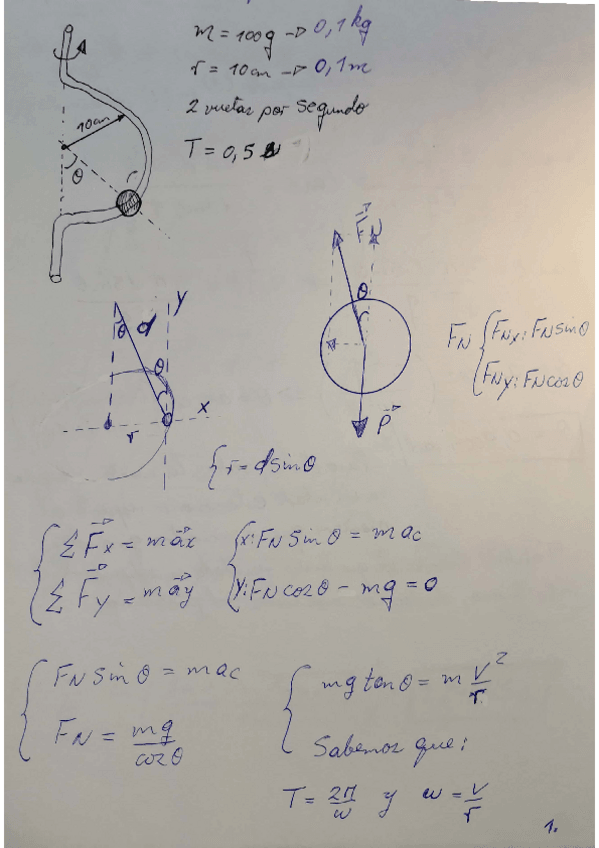 m = 100g → 0,1 kg
r = 10cm → 0,1m
2 vueltas por segundo
T = 0,5 s
10cm
θ
F⃗N
θ
P⃗
FN { FNx: FN sinθ
FNy: FN cosθ
y
θ d
θ
x
r
{ r = d sinθ
{ Σ F⃗x = m a⃗x { x: FN sinθ = m ac
Σ F⃗y = m a⃗y y: FN cosθ - mg = 0
{ FN sinθ = m ac { mg tanθ = m v²/r
FN = mg/cosθ Sabemos que:
T = 2π/ω y ω = v/r
1.